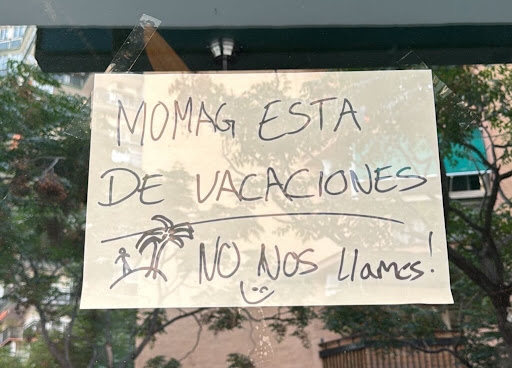 MOMAG ESTA
DE VACACIONES
NO NOS llames!